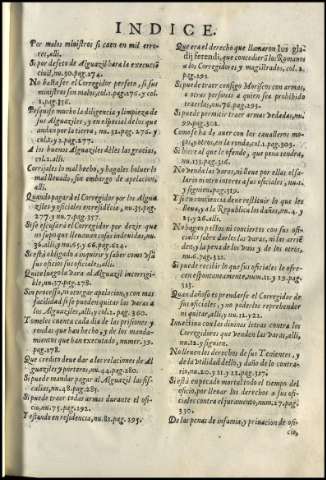 INDICE.
Por malos ministros si caen en mil erro-
res, alli.
Si por defeto de Alguazil hara la execució
civil, nu. 30. pag. 274.
No basta ser el Corregidor perfeto, si sus
ministros son malos, col. 2. pag. 276. y col.
2. pag. 316.
Busque mucho la diligencia y limpieza de
sus Alguaziles, y en especial de los que
andan por la tierra, nu. 32. pag. 276. y
col. 2. y 2. pag. 277.
A los buenos Alguaziles déles las gracias,
col. 2. alli.
Corrijales lo mal hecho, y hagales bolver lo
mal llevado, sin embargo de apelacion,
alli.
Quando pagará el Corregidor por los Algua
ziles y oficiales enresidēcia, nu. 35. pag.
277. y n. 7. pag. 357.
Si se escusará el Corregidor por dezir que
no supo que sus oficiales eran indevidos, nu.
36. alli, y nu. 65. y 66. pag. 624.
Si está obligado a inquirir y saber como vsā
sus oficios sus oficiales, alli.
Quite luego la vara al Alguazil incorregi-
ble, nu. 37. pag. 278.
Sin processo, ni otorgar apelacion, y con mas
facilidad si se pueden quitar las varas a
los Alguaziles, alli, y col. 2. pag. 360.
Tomeles cuenta cada dia de las prisiones y
rondas que han hecho, y de los manda-
mientos que han executado, numer. 39.
pag. 278.
Que credito deve dar a las relaciones de Al
guaziles y porteros, nu. 44. pag. 280.
Si puede mandar pagar al Alguazil las fis-
calias, nu. 48. pag. 285.
Si puede traer todas armas durante el ofi-
cio, nu. 75. pag. 292.
Y estando en residencia, nu. 81. pag. 295.
Que era el derecho que llamaron Ius gla-
dij ferendi, que concedieró los Romanos
a los Corregidores y magistrados, col. 2.
pag. 292.
Si puede traer consigo Moriscos con armas,
a otras personas a quien sea prohibido
traerlas, nu. 76. pag. 293.
Si puede permitir traer armas vedadas, nu.
Como se ha de aver con los cavalleros mo-
ços, y otros, en la ronda, col. 2. pag. 309.
Si hiere al que le ofende, que pena tendra,
nu. 133. pag. 316.
No venda las varas, ni lleve por ellas el sala-
rio ni otro interes a sus oficiales, nu. 1.
y siguien. pag. 319.
Y si en conciencia deve restituir lo que les
lleva, y a la Republica los daños, nu. 2. y
21. y 26. alli.
No hagan pactos ni conciertos con sus ofi-
ciales sobre darles las varas, ni les arrie-
den, y la pena de los vnos y de los otros,
nu. 6. pag. 322.
Si puede recibir lo que sus oficiales le ofre-
cen espontaneamente, num. 11. y 12. pag.
323.
Quan dañoso es prenderse el Corregidor de
sus oficiales, y no poderlos reprehender
ni quitar, alli, y nu. 22. y 722.
Invectiva con las divinas letras contra los
Corregidores que venden las varas, nu.
12. y siguien.
No lleven los derechos de sus Tenientes, y
de la vellidad dello, y daño de lo contra-
rio, nu. 20. y 21. y 22. pag. 327.
Si está empecado mortal todo el tiempo del
oficio, por llevar los derechos a sus ofi-
ciales contra el juramento, num. 27. pag.
330.
De las penas de infamia, y privacion de ofi-
cio,